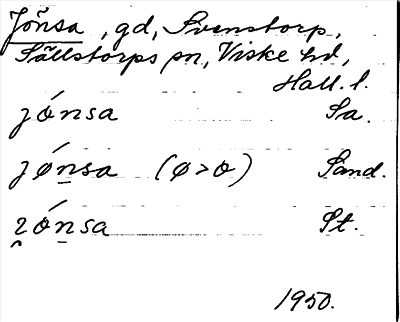 Jönsa, gd, Svenstorp,
Sällstorps sn, Viske hd,
Hall. l.
jónsa Sa.
jǿnsa (ø>o) Sand.
ɿónsa St.
1950.